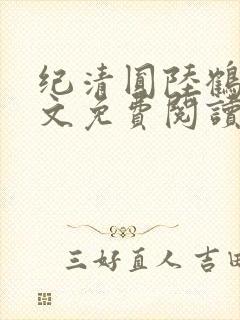 纪清囿陸鶴
文免費閱讀
三好直人 吉田